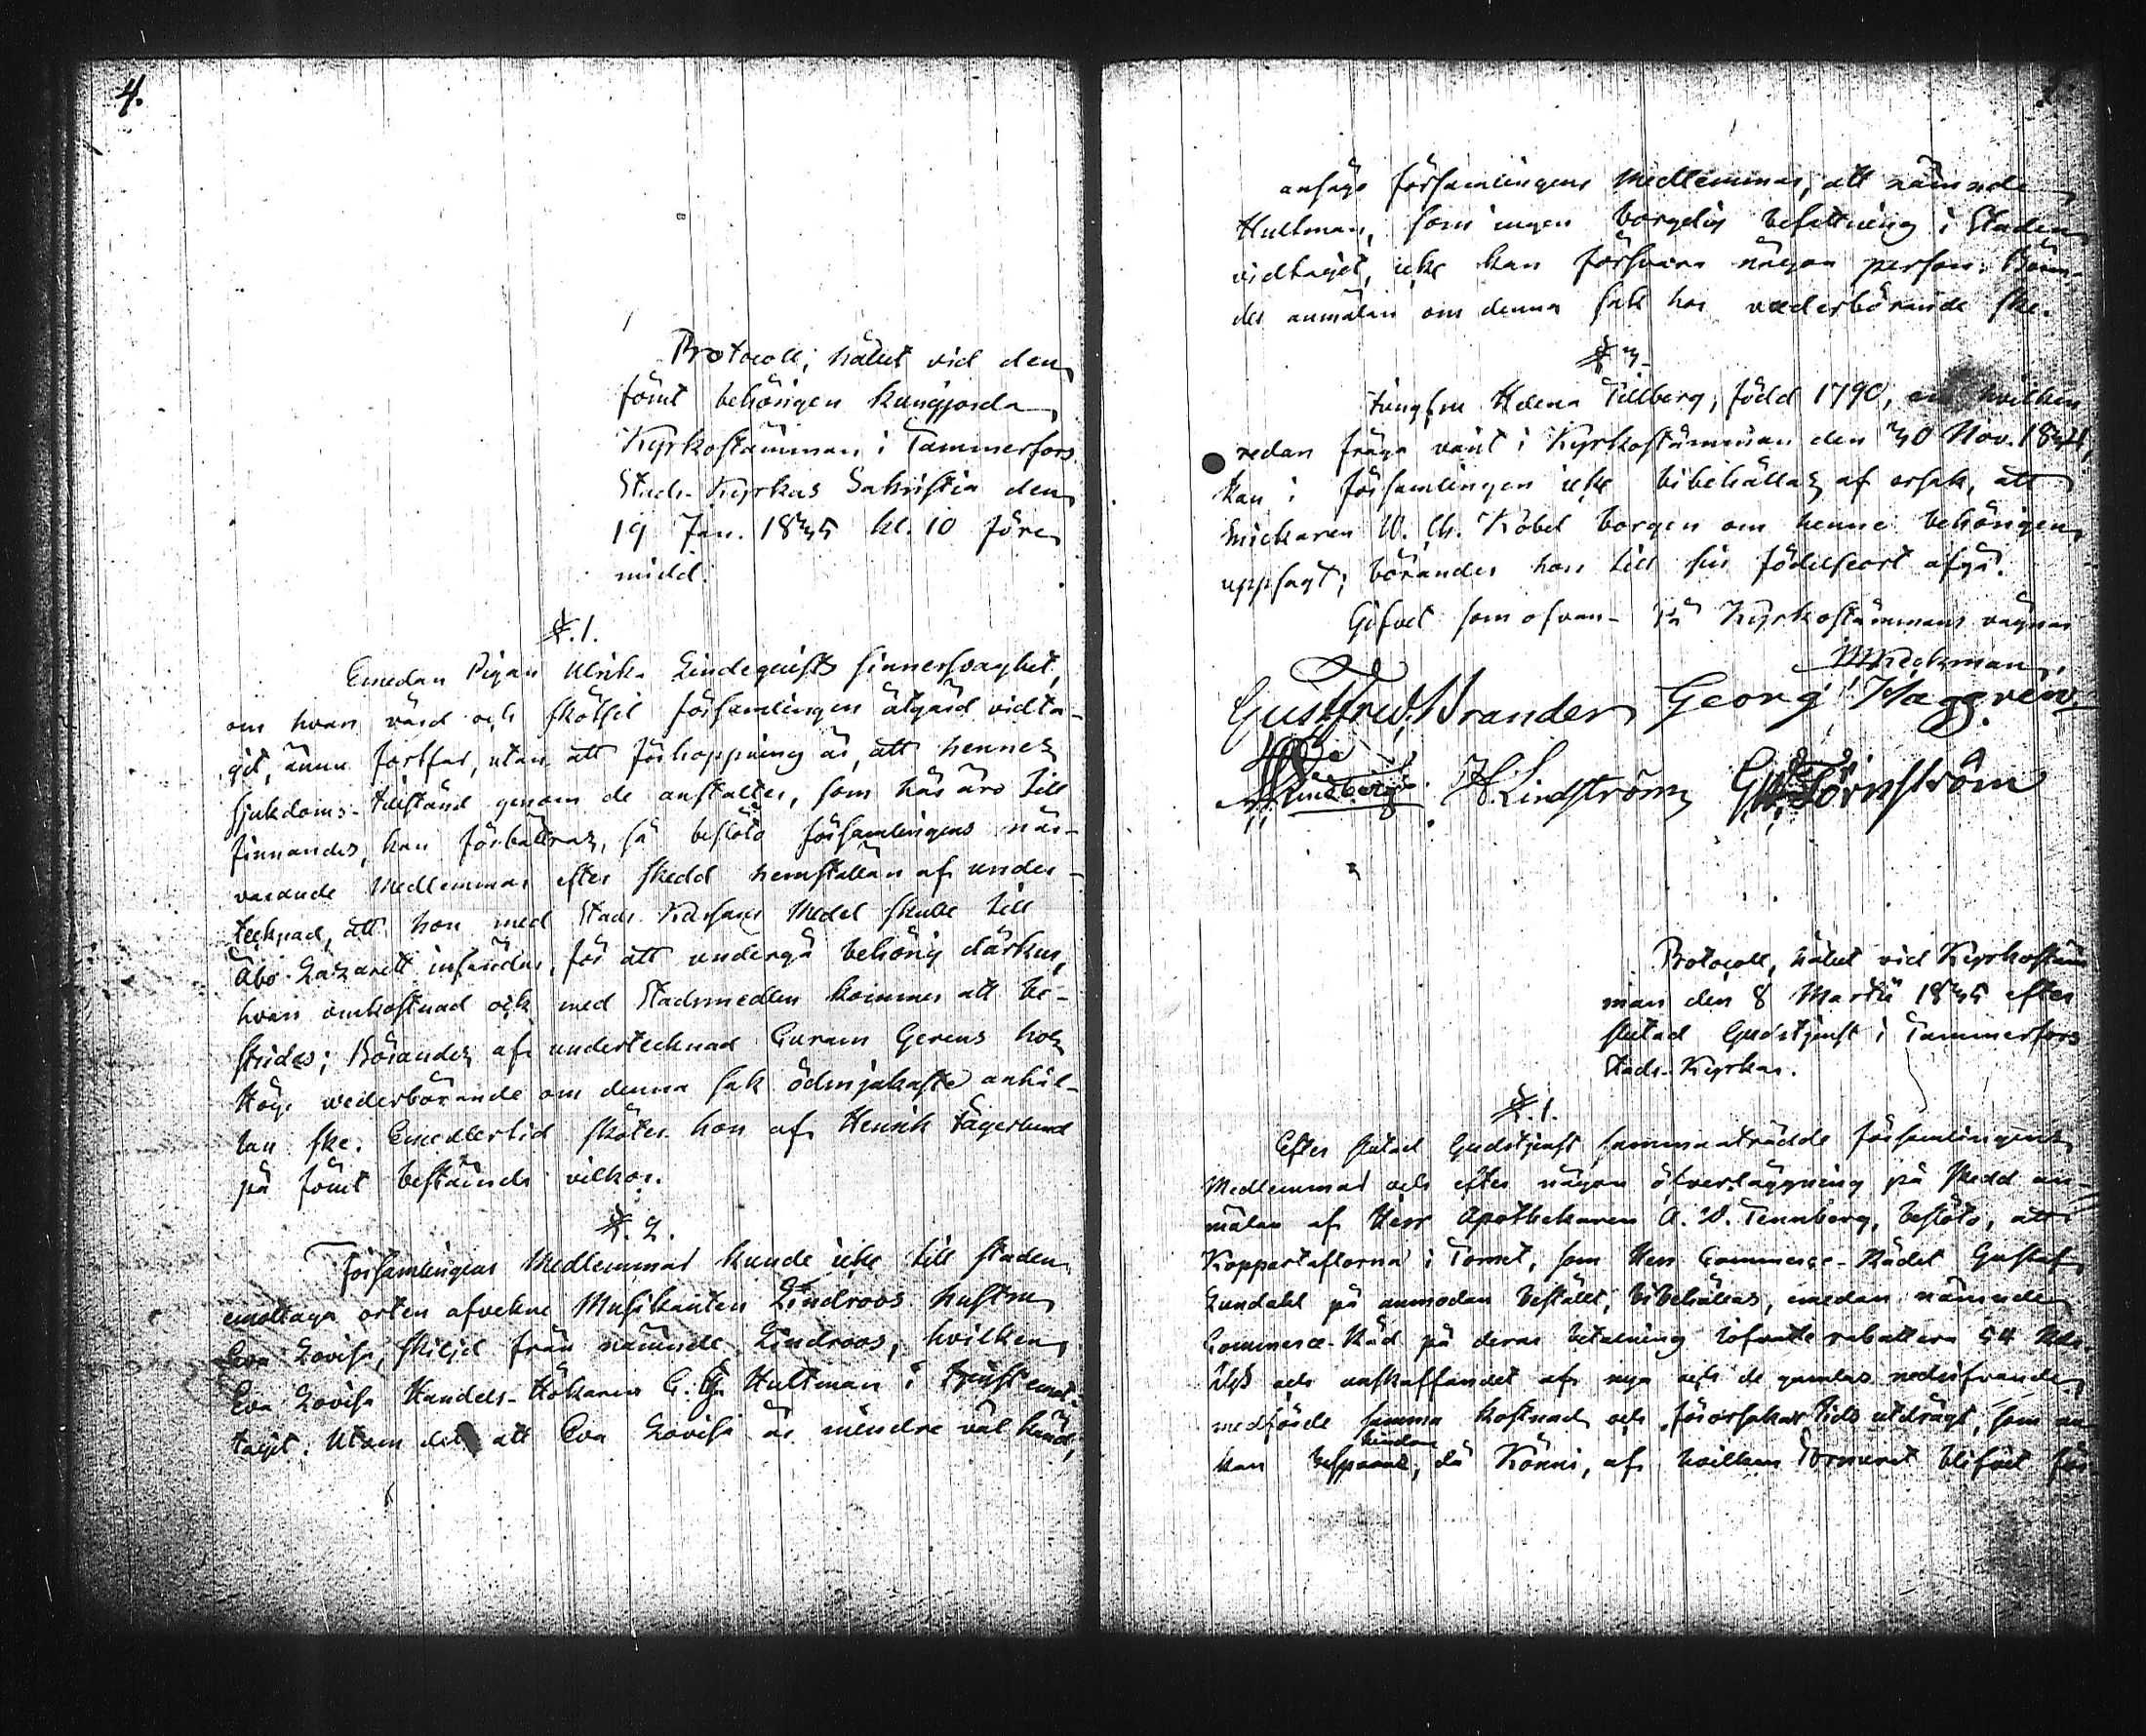 4.
Protocoll, hållet vid den
förut behörigen kungjorda
Kyrkostämman i Tammerfors
Stads-Kyrkas Sakristia den
19 Jan. 1835 kl. 10 före
midd.
§. 1.
Emedan Pigan Ulrika Lindequists sinnessvaghet,
om hvars vård och skötsel församlingen åtgärd vidta-
git, ännu fortfar, utan att förhoppning är, att hennes
sjukdoms-tillstånd genom de anstalter, som här äro till
finnandes, kan förbättras, så beslöto församlingens när-
varande Medlemmar efter skedd hemställan af under-
tecknad, att hon med Stads-Kassans Medel skulle till
Åbo-Lazarett insändas, för att undergå behörig dårkur,
hvars omkostnad ock med Stadsmedlen kommer att be-
stridas; Börandes af undertecknad Curam Gerens hos
Höge wederbörande om denna sak ödmjukaste anhål-
lan ske. Emedlertid skötes hon af Henrik Lägerlund
på förut bestämda vilkor.
§. 2.
Församlingens Medlemmar kunde icke till staden
emottaga orten afvekne Musikanten Lindroos hustru
Eva Lovisa, skiljd från nämnde Lindroos, hvilken
Eva Lovisa Handels-Hökaren C. Hultman i tjenst emot-
tagit. Utom det att Eva Lovisa är mindre väl känd,
ansågo församlingens Medlemmar, att nämnde
Hultman, som ingen borgerlig befattning i Staden
vidtagit, icke kan försvara någon person. Böran-
des anmälan om denna sak hos wederbörande ske.
§ 3.
Jungfru Helena Tillberg, född 1790, om hvilken
redan fråga varit i Kyrkostämman den 30 Nov. 1834,
kan i församlingen icke bibehållas af orsak, att
Snickaren W. Ch. Köbel borgen om henne behörigen
uppsagt; börandes hon till sin födelseort afgå.
Gifvet som ofvan - På Kyrkostämmans vägnar
Gust Fred. Brander Georg Häggrén
Lindberg H. Lindström G. W. Törnström
Protocoll, hållet vid Kyrkostäm
man den 8 Martii 1835 efter
slutad Gudstjenst i Tammerfors
Stads-Kyrka.
§. 1.
Efter slutad Gudstjenst sammanträdde församlingens
Medlemmar och efter någon öfverläggning på skedd an-
mälan af Herr Apothekaren A. W. Tennberg, beslöto, att
Koppartaflorna i Tornet, som Herr Commerce-Rådet Gustaf
Lundahl på anmodan bestält, bibehållas, emedan nämnde
Commerce-Råd på deras betalning lofvade rabattera 54
och anskaffandet af nya och de gamlas
medförde samma kostnad och förorsakar tids utdrägt, som
kan hindra besparas, då Könni, af hvilken Tornuret blifvit för-